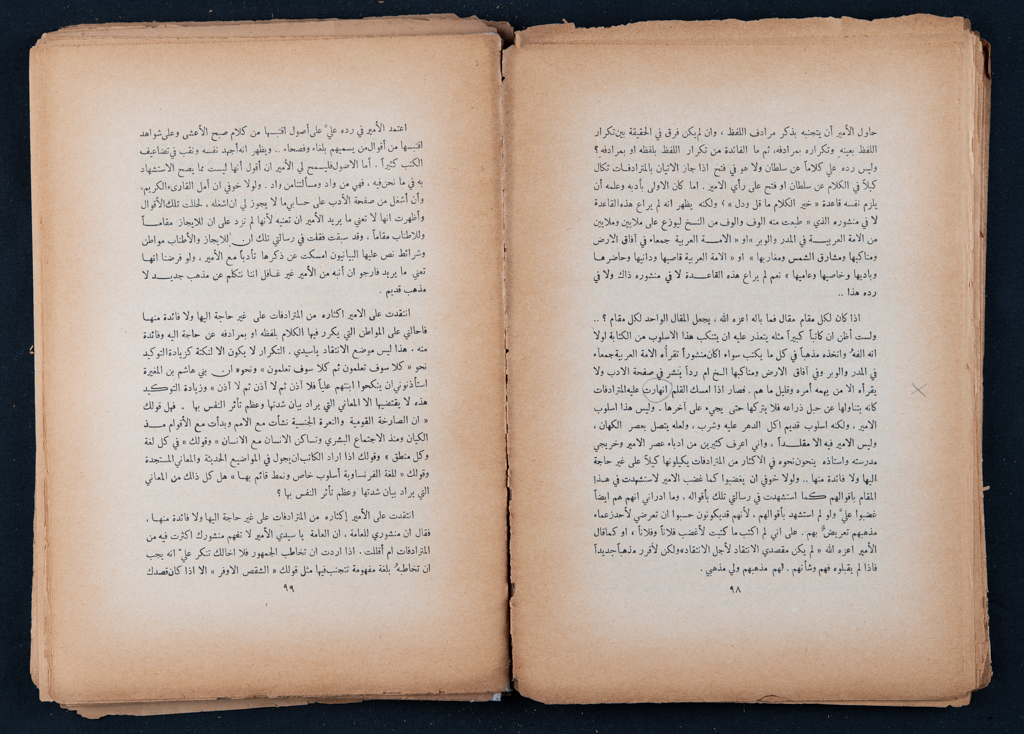 حاول الأمير أن يتجنبه بذكر مرادف اللفظ ، وان لم يكن فرق في الحقيقة بين تكرار
اللفظ بعينه وتكراره بمرادفه، ثم ما الفائدة من تكرار اللفظ بلفظه او بمرادفه ؟
وليس رده علي كلاماً عن سلطان ولا هو في فتح اذا جاز الاتيان بالمترادفات تكال
كيلاً في الكلام عن سلطان او فتح على رأي الامير . اما كان الاولى بأدبه وعلمه أن
يلزم نفسه قاعدة « خير الكلام ما قل ودل » ؟ ولكنه يظهر انه لم يراع هذه القاعدة
لا في منشوره الذي « طبعت منه الوف والوف من النسخ ليوزع على ملايين وملايين
من الامة العربيـــة في المدر والوبر » او « الامـــة العربية جمعاء في آفاق الارض
ومناكبها ومشارق الشمس ومغاربها » او « الامة العربية قاصيها ودانيها وحاضرها
وباديها وخاصيها وعاميها » نعم لم يراع هذه القاعـــدة لا في منشوره ذاك ولا في
رده هذا ..
اذا كان لكل مقام مقال فما باله اعزه الله ، يجعل المقال الواحد لكل مقام ؟ ..
ولست أظن ان كاتباً كبيراً مثله يتعذر عليه ان يتنكب هذا الاسلوب من الكتابة لولا
انه الفه واتخذه مذهباً في كل ما يكتب سواء اكان منشوراً تقرأه الامة العربية جمعاء
في المدر والوبر وفي آفاق الارض ومناكبها الخ ام رداً ينشر في صفحة الادب ولا
يقرأه الا من يهمه أمره وقليل ما هم . فصار اذا امسك القلم انهارت عليه المترادفات
كأنه يتناولها عن حبل ذراعه فلا يتركها حتى يجيء على آخرها . وليس هذا اسلوب
الامير ، ولكنه اسلوب قديم اكل الدهر عليه وشرب ، ولعله يتصل بعصر الكهان ،
وليس الامير فيه الا مقلـــداً ، واني اعرف كثيرين من ادباء عصر الامير وخريجي
مدرسته واستاذه ينحون نحوه في الاكثار من المترادفات يكيلونها كيلاً على غير حاجة
اليها ولا فائدة منها .. ولولا خوفي ان يغضبوا كما غضب الامير لاستشهدت في هـذا
المقام باقوالهم كـما استشهدت في رسالتي تلك بأقواله ، وما ادراني انهم هم ايضاً
غضبوا عليّ ولو لم استشهد بأقوالهم ، لأنهم قد يكونون حسبوا ان تعرضي لأحد زعماء
مذهبهم تعريضٌ بهم . على اني لم اكتب ما كتبت لأغضب فلاناً وفلاناً ، او كما قال
الأمير اعزه الله « لم يكن مقصدي الانتقاد لأجل الانتقاد » ولكن لأقرر مذهباً جديداً
فاذا لم يقبلوه فهم وشأنهم . لهم مذهبهم ولي مذهبي .
٩٨
اعتمد الأمير في رده عليّ على أصول اقتبسها من كلام صبح الأعشى وعلى شواهد
اقتبسها من أقوال من يسميهم بلغاء وفصحاء .. ويظهر انه أجهد نفسه ونقب في تضاعيف
الكتب كثيراً . أما الاصول فليسمح لي الأمير ان أقول أنها ليست مما يصح الاستشهاد
به في ما نحن فيه ، فهي من واد ومسألتنا من واد . ولولا خوفي ان أمل القارىء الكريم،
وأن أشغل من صفحة الأدب على حسابي ما لا يجوز لي ان اشغله ، لحللت تلك الأقوال
وأظهرت انها لا تعني ما يريد الأمير ان تعنيه لأنها لم تزد على ان للايجاز مقامـــاً
وللاطناب مقاماً ، وقد سبقت فقلت في رسالتي تلك ان للايجاز والأطناب مواطن
وشرائط نص عليها البيانيون امسكت عن ذكرها تأدباً مع الأمير ، ولو فرضنا انهـا
تعني ما يريد فارجو ان أنبه من الأمير غير غـافل اننا نتكلم عن مذهب جديـــد لا
مذهب قديم .
انتقدت على الامير اكثاره من المترادفات على غير حاجة اليها ولا فائدة منهـا
فاحالني على المواطن التي يكرر فيها الكلام بلفظه او بمرادفه عن حاجة اليه وفائدة
منه . هذا ليس موضع الانتقاد ياسيدي . التكرار لا يكون الا لنكتة كزيادة التوكيد
نحو « كلا سوف تعلمون ثم كلا سوف تعلمون » ونحوه ان بني هاشم بن المغيرة
استأذنوني ان ينكحوا ابنتهم علياً فلا آذن ثم لا آذن ثم لا آذن » وزيادة التوكـيد
هذه لا يقتضيها الا المعاني التي يراد بيان شدتها وعظم تأثر النفس بها . فهل قولك
« ان الصارخة القومية والنعرة الجنسية نشأت مع الامم وبدأت مع الأقوام مـــذ
الكيان ومنذ الاجتماع البشري وتساكن الانسان مـع الانسان » وقولك « في كل لغة
وكل منطق » وقولك اذا اراد الكاتب ان يجول في المواضيع الحديثة والمعاني المستجدة
وقولك « للغة الفرنساوية أسلوب خاص ونمط قائم بهـا » هل كل ذلك من المعاني
التي يراد بيان شدتها وعظم تأثر النفس بها ؟
انتقدت على الأمير إكثاره من المترادفات على غير حاجة اليها ولا فائدة منهـا ،
فقال ان منشوري للعامة ، ان العامة يا سيدي الأمير لا تفهم منشورك اكثرت فيه من
المترادفات ام أقللت . اذا اردت ان تخاطب الجمهور فلا اخالك تنكر عليّ انه يجب
ان تخاطبه بلغة مفهومة تتجنب فيها مثل قولك « الشقص الاوفر » الا اذا كان قصدك
٩٩